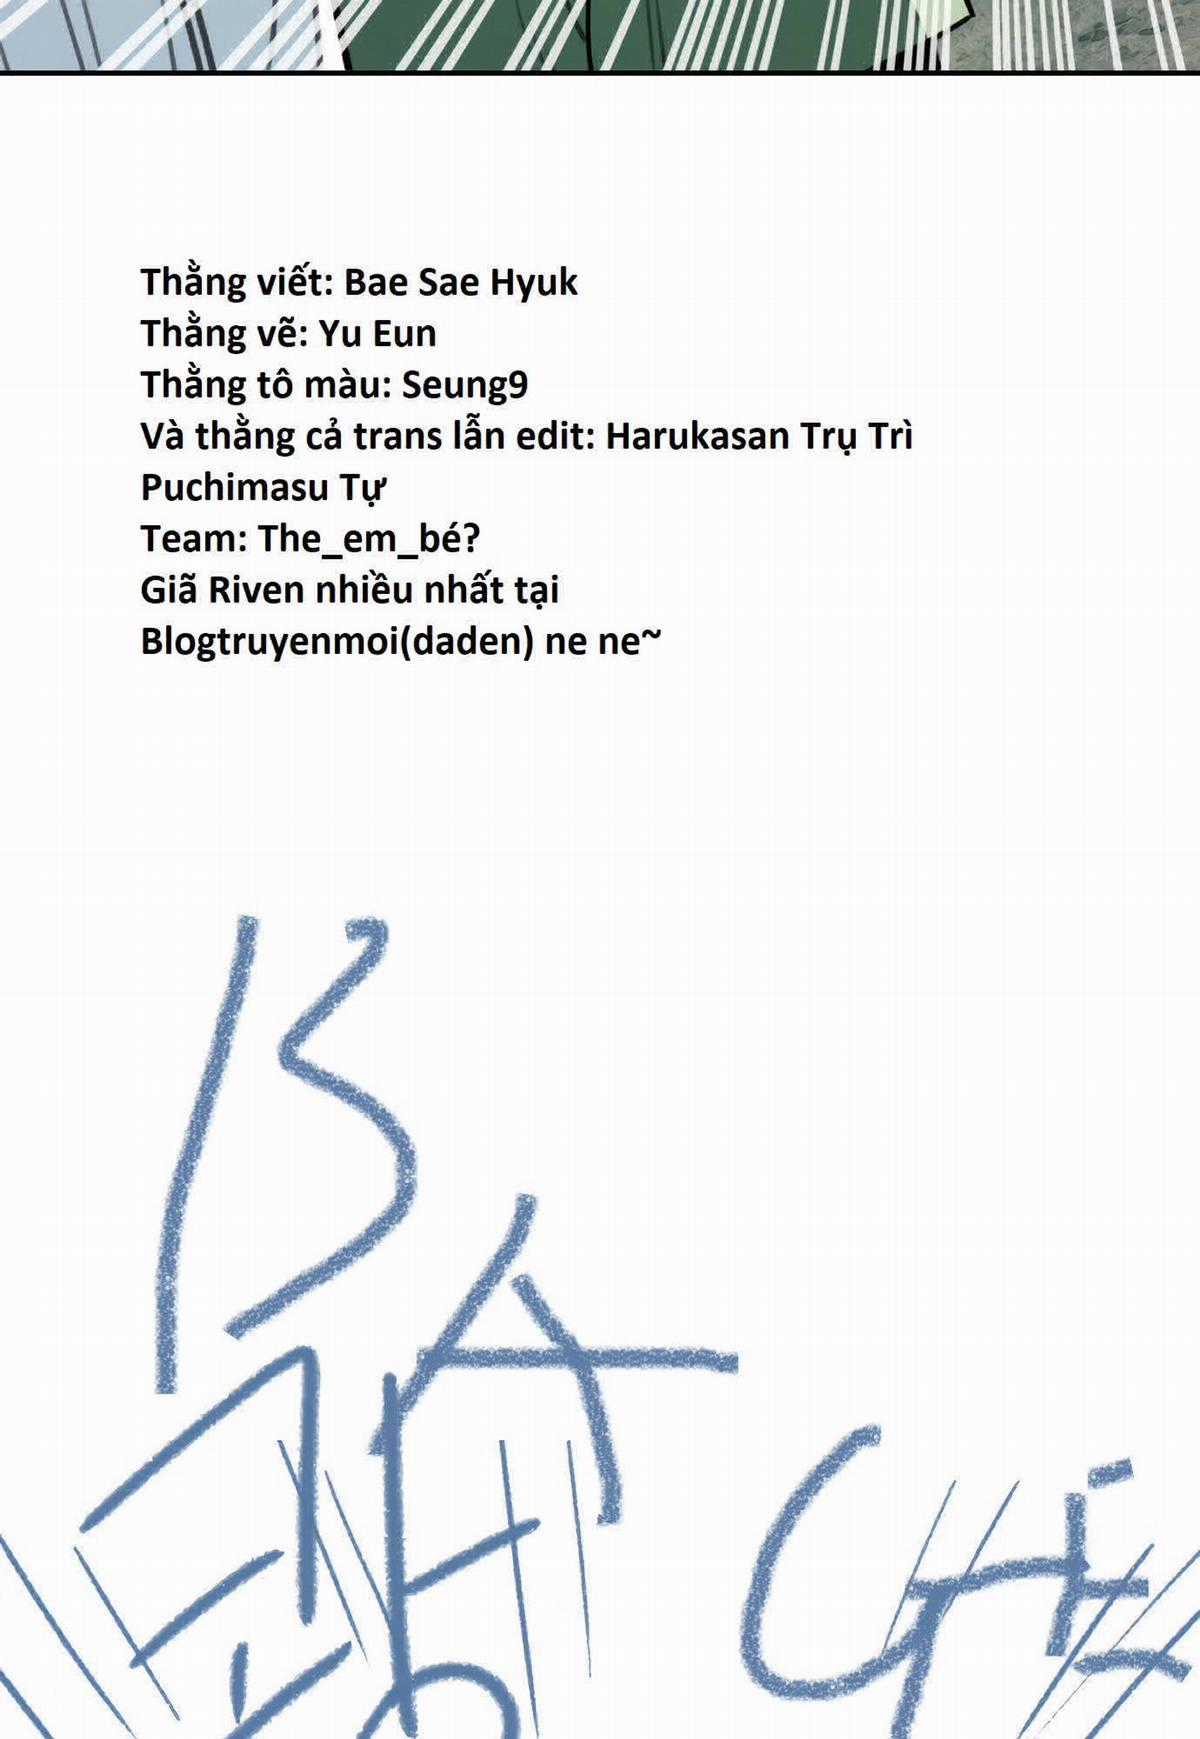 Thằng viết: Bae Sae Hyuk
Thằng vẽ: Yu Eun
Thằng tô màu: Seung9
Và thằng cả trans lẫn edit: Harukasan Trụ Trì
Puchimasu Tự
Team: The_em_bé?
Giã Riven nhiều nhất tại
Blogtruyenmoi(daden) ne ne~